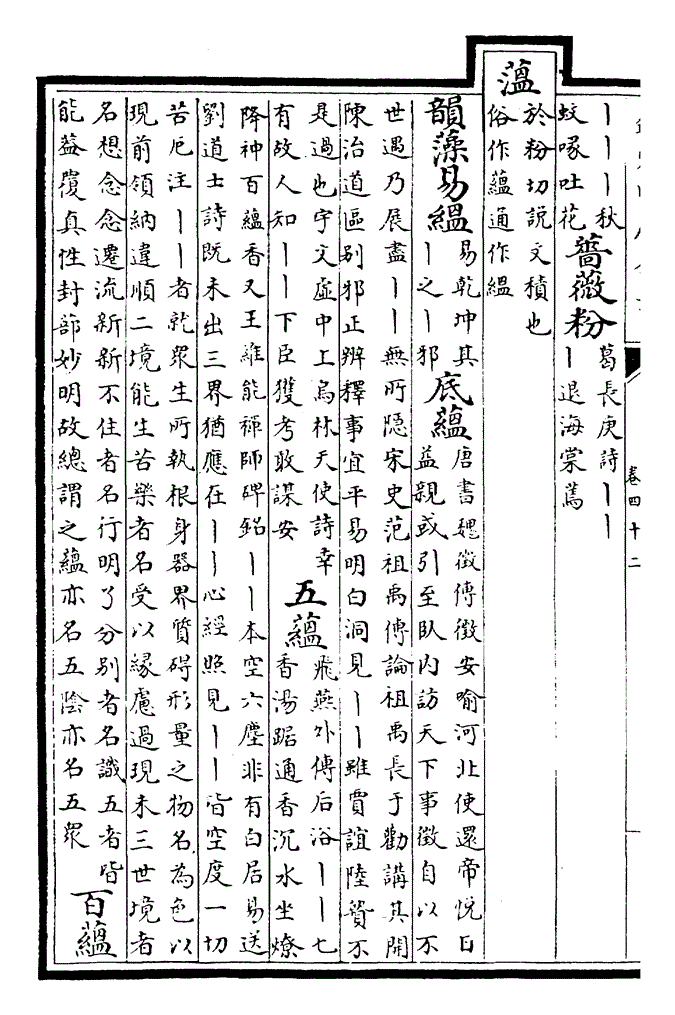 卷四十二
丨丨丨秋
蚊喙吐花
薔薇粉
葛長庚詩丨丨
丨退海棠蔫
薀
於粉切說文積也
俗作蘊通作縕
韻藻易縕
易乾坤其
丨之丨邪
底蘊
唐書魏徵傳徵安喻河北使還帝悅日
益親或引至臥内訪天下事徵自以不
世遇乃展盡丨丨無所隱宋史范祖禹傳論祖禹長于勸講其開
陳治道區别邪正辨釋事宜平易明白洞見丨丨雖賈誼陸贄不
是過也宇文虛中上烏林天使詩幸
有故人知丨丨下臣獲考敢謀安
五蘊
飛燕外傳后浴丨丨七
香湯踞通香沉水坐燎
降神百蘊香又王維能禪師碑銘丨丨本空六塵非有白居易送
劉道士詩既未出三界猶應在丨丨心經照見丨丨皆空度一切
苦厄注丨丨者就衆生所執根身器界質碍形量之物名為色以
現前領納違順二境能生苦樂者名受以緣慮過現未三世境者
名想念念遷流新新不住者名行明了分别者名識五者皆
能葢覆真性封蔀妙明故總謂之蘊亦名五陰亦名五衆
百蘊